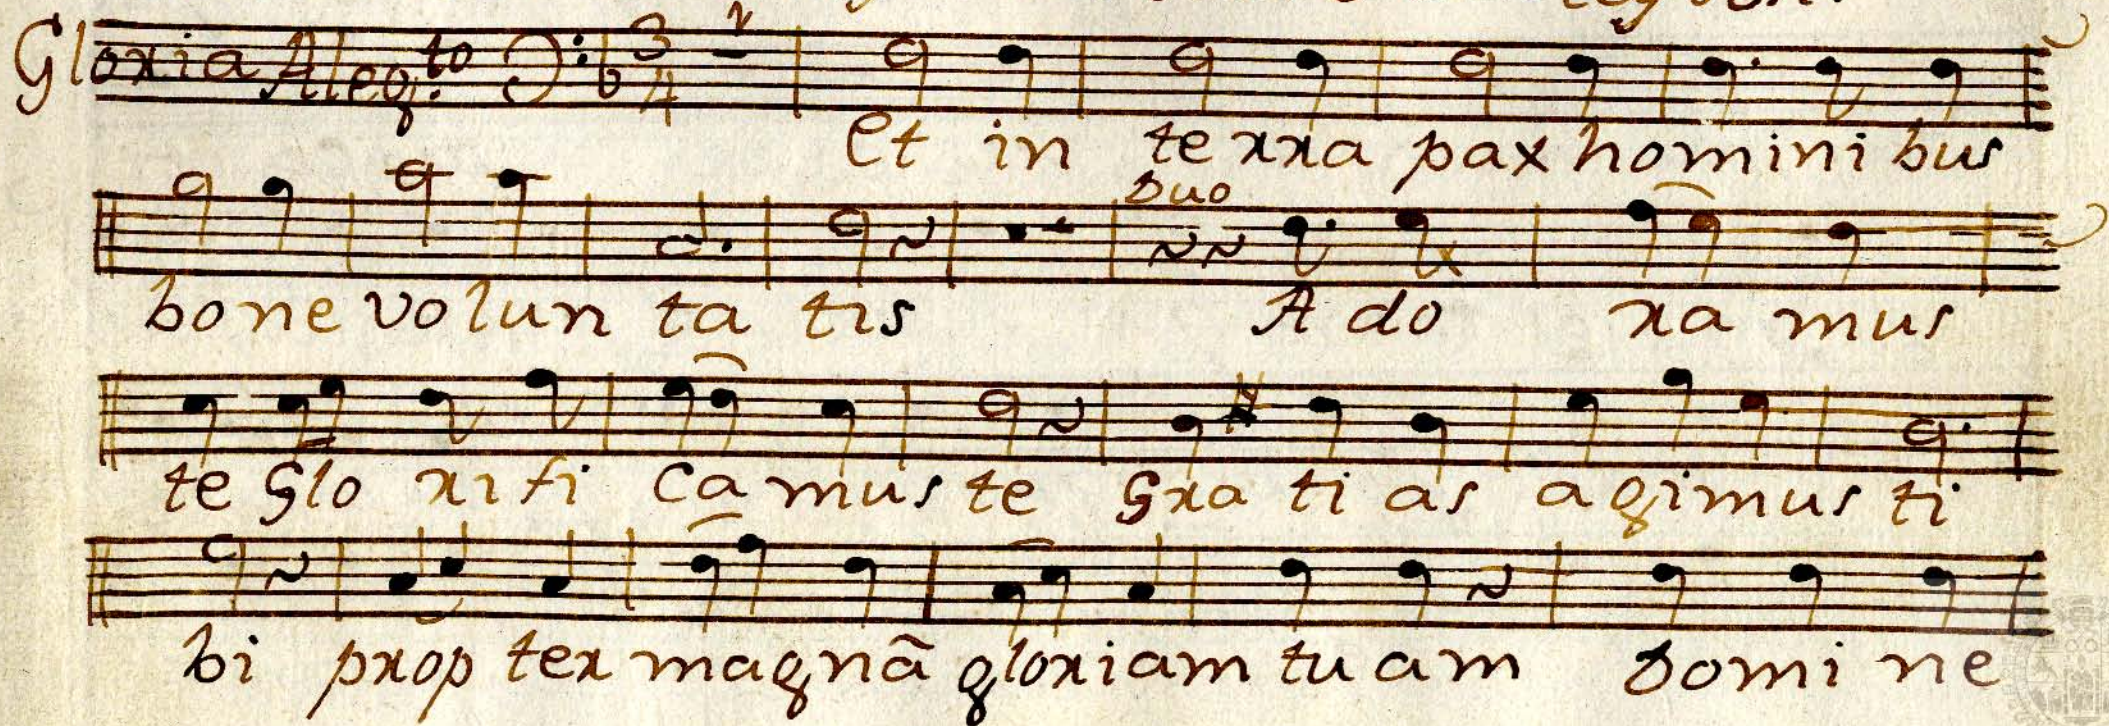 Gloria Aleg.to 3/4
Et in terra pax hominibus
Duo
bone voluntatis Adoramus
te Glorifi camus te Gratias agimus ti
bi propter magnã gloriam tuam Domine